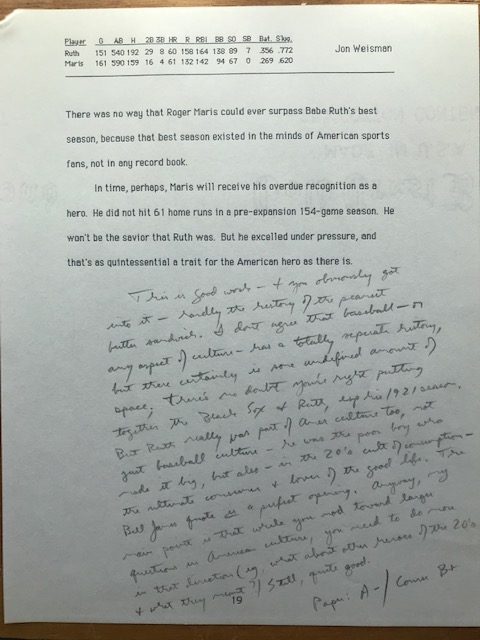 Player G AB H 2B 3B HR R RBI BB SO SB Bat. Slug.
Ruth 151 540 192 29 8 60 158 164 138 89 7 .356 .772
Maris 161 590 159 16 4 61 132 142 94 67 0 .269 .620
Jon Weisman
There was no way that Roger Maris could ever surpass Babe Ruth's best
season, because that best season existed in the minds of American sports
fans, not in any record book.
In time, perhaps, Maris will receive his overdue recognition as a
hero. He did not hit 61 home runs in a pre-expansion 154-game season. He
won't be the savior that Ruth was. But he excelled under pressure, and
that's as quintessential a trait for the American hero as there is.
This is good work - & you obviously got
into it - hardly the history of the peanut
butter sandwich. I don't agree that baseball - or
any aspect of culture - has a totally seperate history,
but there certainly is some undefined amount of
space; there's no doubt you're right putting
together the Black Sox & Ruth, esp his 1921 season.
But Ruth really was part of Amer culture too, not
just baseball culture - he was the poor boy who
made it big, but also - in the 20's cult of consumption -
the ultimate consumer & lover of the good life. The
Bill James quote is a perfect opening. Anyway, my
main point is that while you nod toward larger
questions in American culture, you need to do more
in that direction (eg, what about other heroes of the 20's
& what they meant?) Still, quite good.
Paper: A-/ Course B+
19